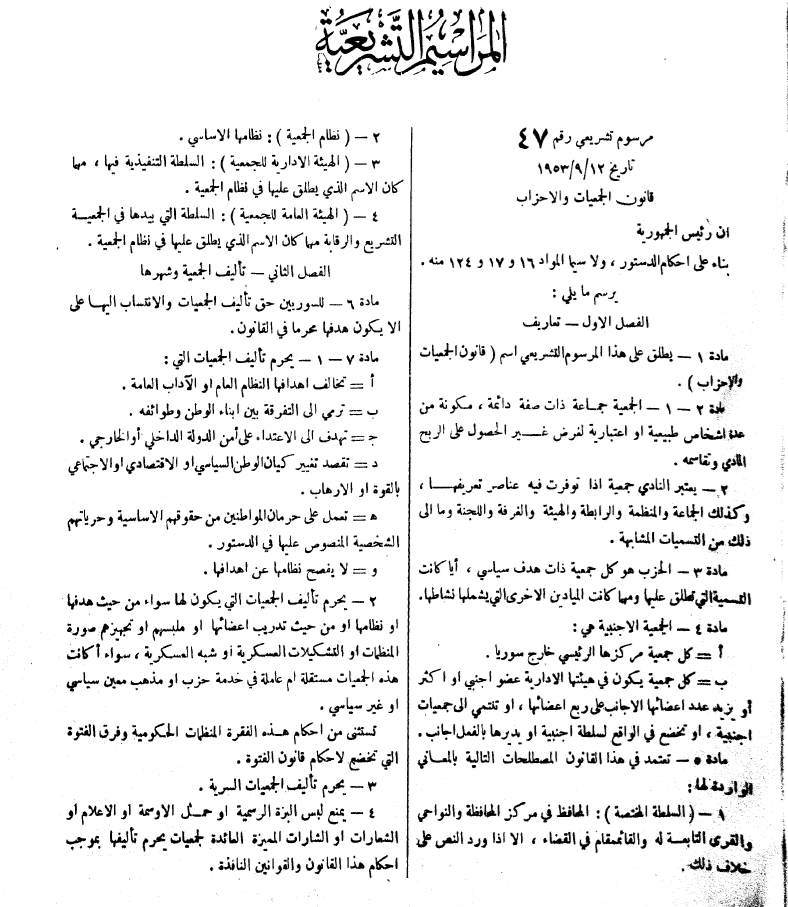 المراسيم التشريعية
مرسوم تشريعي رقم ٤٧
تاريخ ١٩٥٣/٩/١٢
قانون الجمعيات والاحزاب
ان رئيس الجمهورية
بناء على احكام الدستور ، ولا سيما المواد ١٦ و ١٧ و ١٢٤ منه .
يرسم ما يلي :
الفصل الاول — تعاريف
مادة ١ — يطلق على هذا المرسوم التشريعي اسم ( قانون الجمعيات
والاحزاب ) .
مادة ٢ — ١ — الجمعية جماعة ذات صفة دائمة ، مكونة من
عدة اشخاص طبيعية او اعتبارية لغرض غـــير الحصول على الربح
المادي وتقاسمه .
٢ — يعتبر النادي جمعية اذا توفرت فيه عناصر تعريفهـــا ،
وكذلك الجماعة والمنظمة والرابطة والهيئة والفرقة واللجنة وما الى
ذلك من التسميات المشابهة .
مادة ٣ — الحزب هو كل جمعية ذات هدف سياسي ، أيا كانت
التسمية التي تطلق عليها ومهما كانت الميادين الاخرى التي يشملها نشاطها.
مادة ٤ — الجمعية الاجنبية هي :
أ = كل جمعية مركزها الرئيسي خارج سوريا .
ب = كل جمعية يكون في هيئتها الادارية عضو اجنبي او اكثر
أو يزيد عدد اعضائها الاجانب على ربع اعضائها ، او تنتمي الى جمعيات
اجنبية ، او تخضع في الواقع لسلطة اجنبية او يديرها بالفعل اجانب .
مادة ٥ — تعتمد في هذا القانون المصطلحات التالية بالمعاني
الواردة لها :
١ — ( السلطة المختصة ) : المحافظ في مركز المحافظة والنواحي
والقرى التابعـــة له والقائمقام في القضاء ، الا اذا ورد النص على
خلاف ذلك .
٢ — ( نظام الجمعية ) : نظامها الاساسي .
٣ — ( الهيئة الادارية للجمعية ) : السلطة التنفيذية فيها ، مهما
كان الاسم الذي يطلق عليها في نظام الجمعية .
٤ — ( الهيئة العامة للجمعية ) : السلطة التي بيدها في الجمعيـــة
التشريع والرقابة مهما كان الاسم الذي يطلق عليها في نظام الجمعية .
الفصل الثاني — تأليف الجمعية وشهرها
مادة ٦ — للسوريين حق تأليف الجمعيات والانتساب اليهـا على
الا يكون هدفها محرما في القانون.
مادة ٧ — ١ — يحرم تأليف الجمعيات التي :
أ = تخالف اهدافها النظام العام او الآداب العامة .
ب = ترمي الى التفرقة بين ابناء الوطن وطوائفه .
جـ = تهدف الى الاعتداء على أمن الدولة الداخلي أو الخارجي .
د = تقصد تغيير كيان الوطن السياسي او الاقتصادي او الاجتماعي
بالقوة او الارهاب .
هـ = تعمل على حرمان المواطنين من حقوقهم الاساسية وحرياتهم
الشخصية المنصوص عليها في الدستور .
و = لا يفصح نظامها عن اهدافها .
٢ — يحرم تأليف الجمعيات التي يكون لها سواء من حيث هدفها
او نظامها او من حيث تدريب اعضائها او ملبسهم او تجهيزهم صورة
المنظمات او التشكيلات العسكرية او شبه العسكرية ، سواء أكانت
هذه الجمعيات مستقلة ام عاملة في خدمة حزب او مذهب معين سياسي
او غير سياسي .
تستثنى من احكام هـــذه الفقرة المنظمات الحكومية وفرق الفتوة
التي تخضع لاحكام قانون الفتوة .
٣ — يحرم تأليف الجمعيات السرية .
٤ — يمنع لبس البزة الرسمية او حمـــل الاوسمة او الاعلام او
الشعارات او الشارات المميزة العائدة لجمعيات يحرم تأليفها بموجب
احكام هذا القانون والقوانين النافذة .